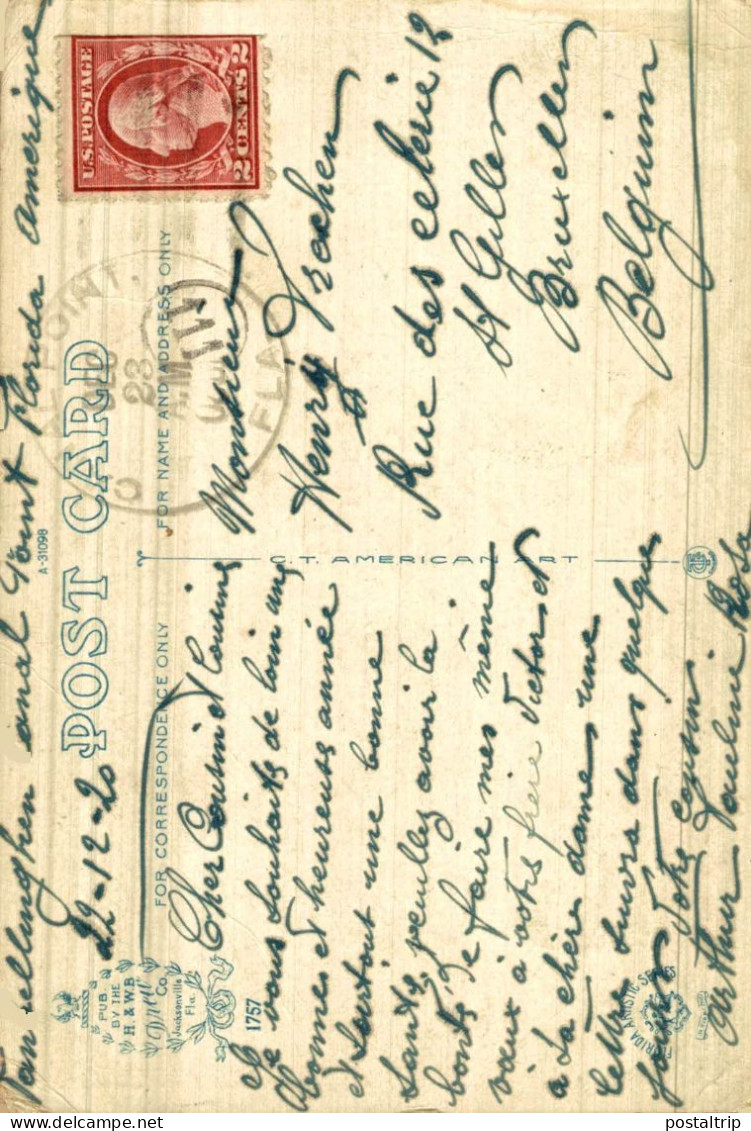 Van Tellinghen Canal Point Florida Amerique
22-12-20
POST CARD
A-31098
FOR CORRESPONDENCE ONLY
FOR NAME AND ADDRESS ONLY
U.S. POSTAGE
2 CENTS 2
POINT
DEC
23
A.M.
FLA
Cher Cousin et Cousine
Je vous souhaits de loin une
bonnes et heureuses année
et surtout une bonne
santé, veuillez avoir la
bonté de faire mes même
vœux à votre frère Victor et
a sa chère dame une
lettre suivra dans quelque
jours Votre cousin
Arthur Pauline Rosa
Monsieur
Henry
Rue des 12
St Gilles
Bruxelles
Belguim
C.T. AMERICAN ART
PUB.
BY THE
H. & W.B.
DREW
Co.
Jacksonville
Fla.
1757
FLORIDA ARTISTIC SERIES
postaltrip